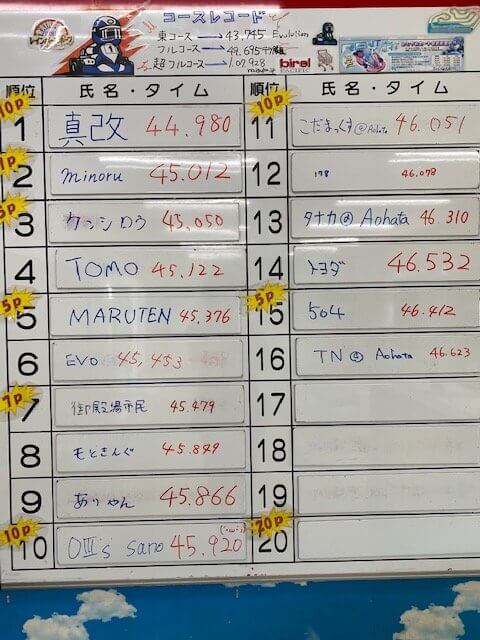 コースレコード
東コース → 43.745 Evolution
フルコース → 49.695
超フルコース → 1.07.928
birel
PACIFIC
順位 氏名・タイム
10P
1 真改 44.980
1P
2 minoru 45.012
5P
3 ケンシロウ 45.050
4 TOMO 45.122
5P
5 MARUTEN 45.376
6 EVO 45.453
7 御殿場市民 45.479
8 もときんぐ 45.849
9 ありゃん 45.866
10P
10 sano 45.920
順位 氏名・タイム
10P
11 こだまっくす@Aohata 46.051
12 178 46.078
13 タナカ@Aohata 46.310
14 トヨダ 46.532
5P
15 504 46.412
16 TN@Aohata 46.623
17
18
19
20P
20